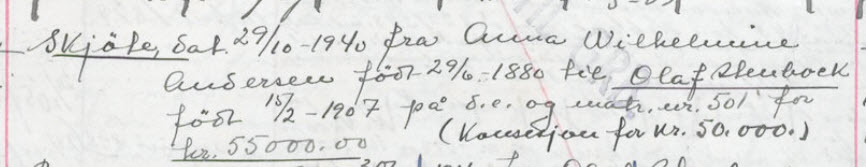 Skjöte, dat. 29/10-1940 fra Anna Wilhelmine
Andersen født 29/6-1880 til Olaf Stenbock
født 15/2-1907 på d.e. og matr. nr. 501 for
kr. 55000.00 (Konsesjon for kr. 50.000.)